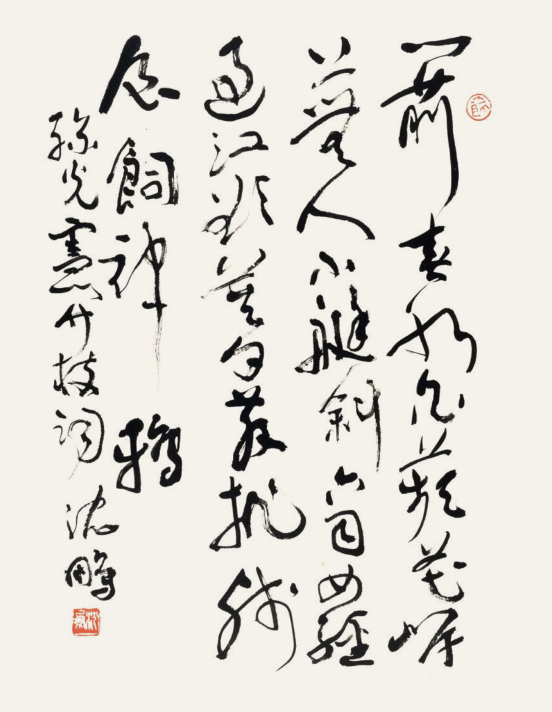 門前春水白蘋花岸
上無人小艇斜商女經
過江欲暮散抛殘
食飼神鴉
孫光憲竹枝詞 沈鵬